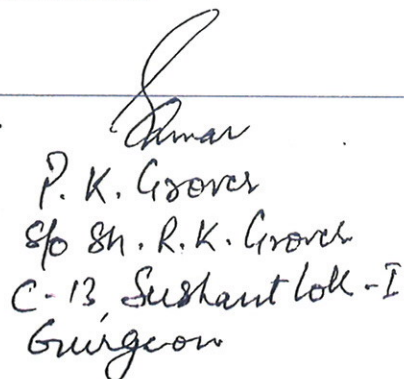 Kumar
P. K. Grover
S/o Sh. R. K. Grover
C-13, Sushant Lok-I
Gurgaon